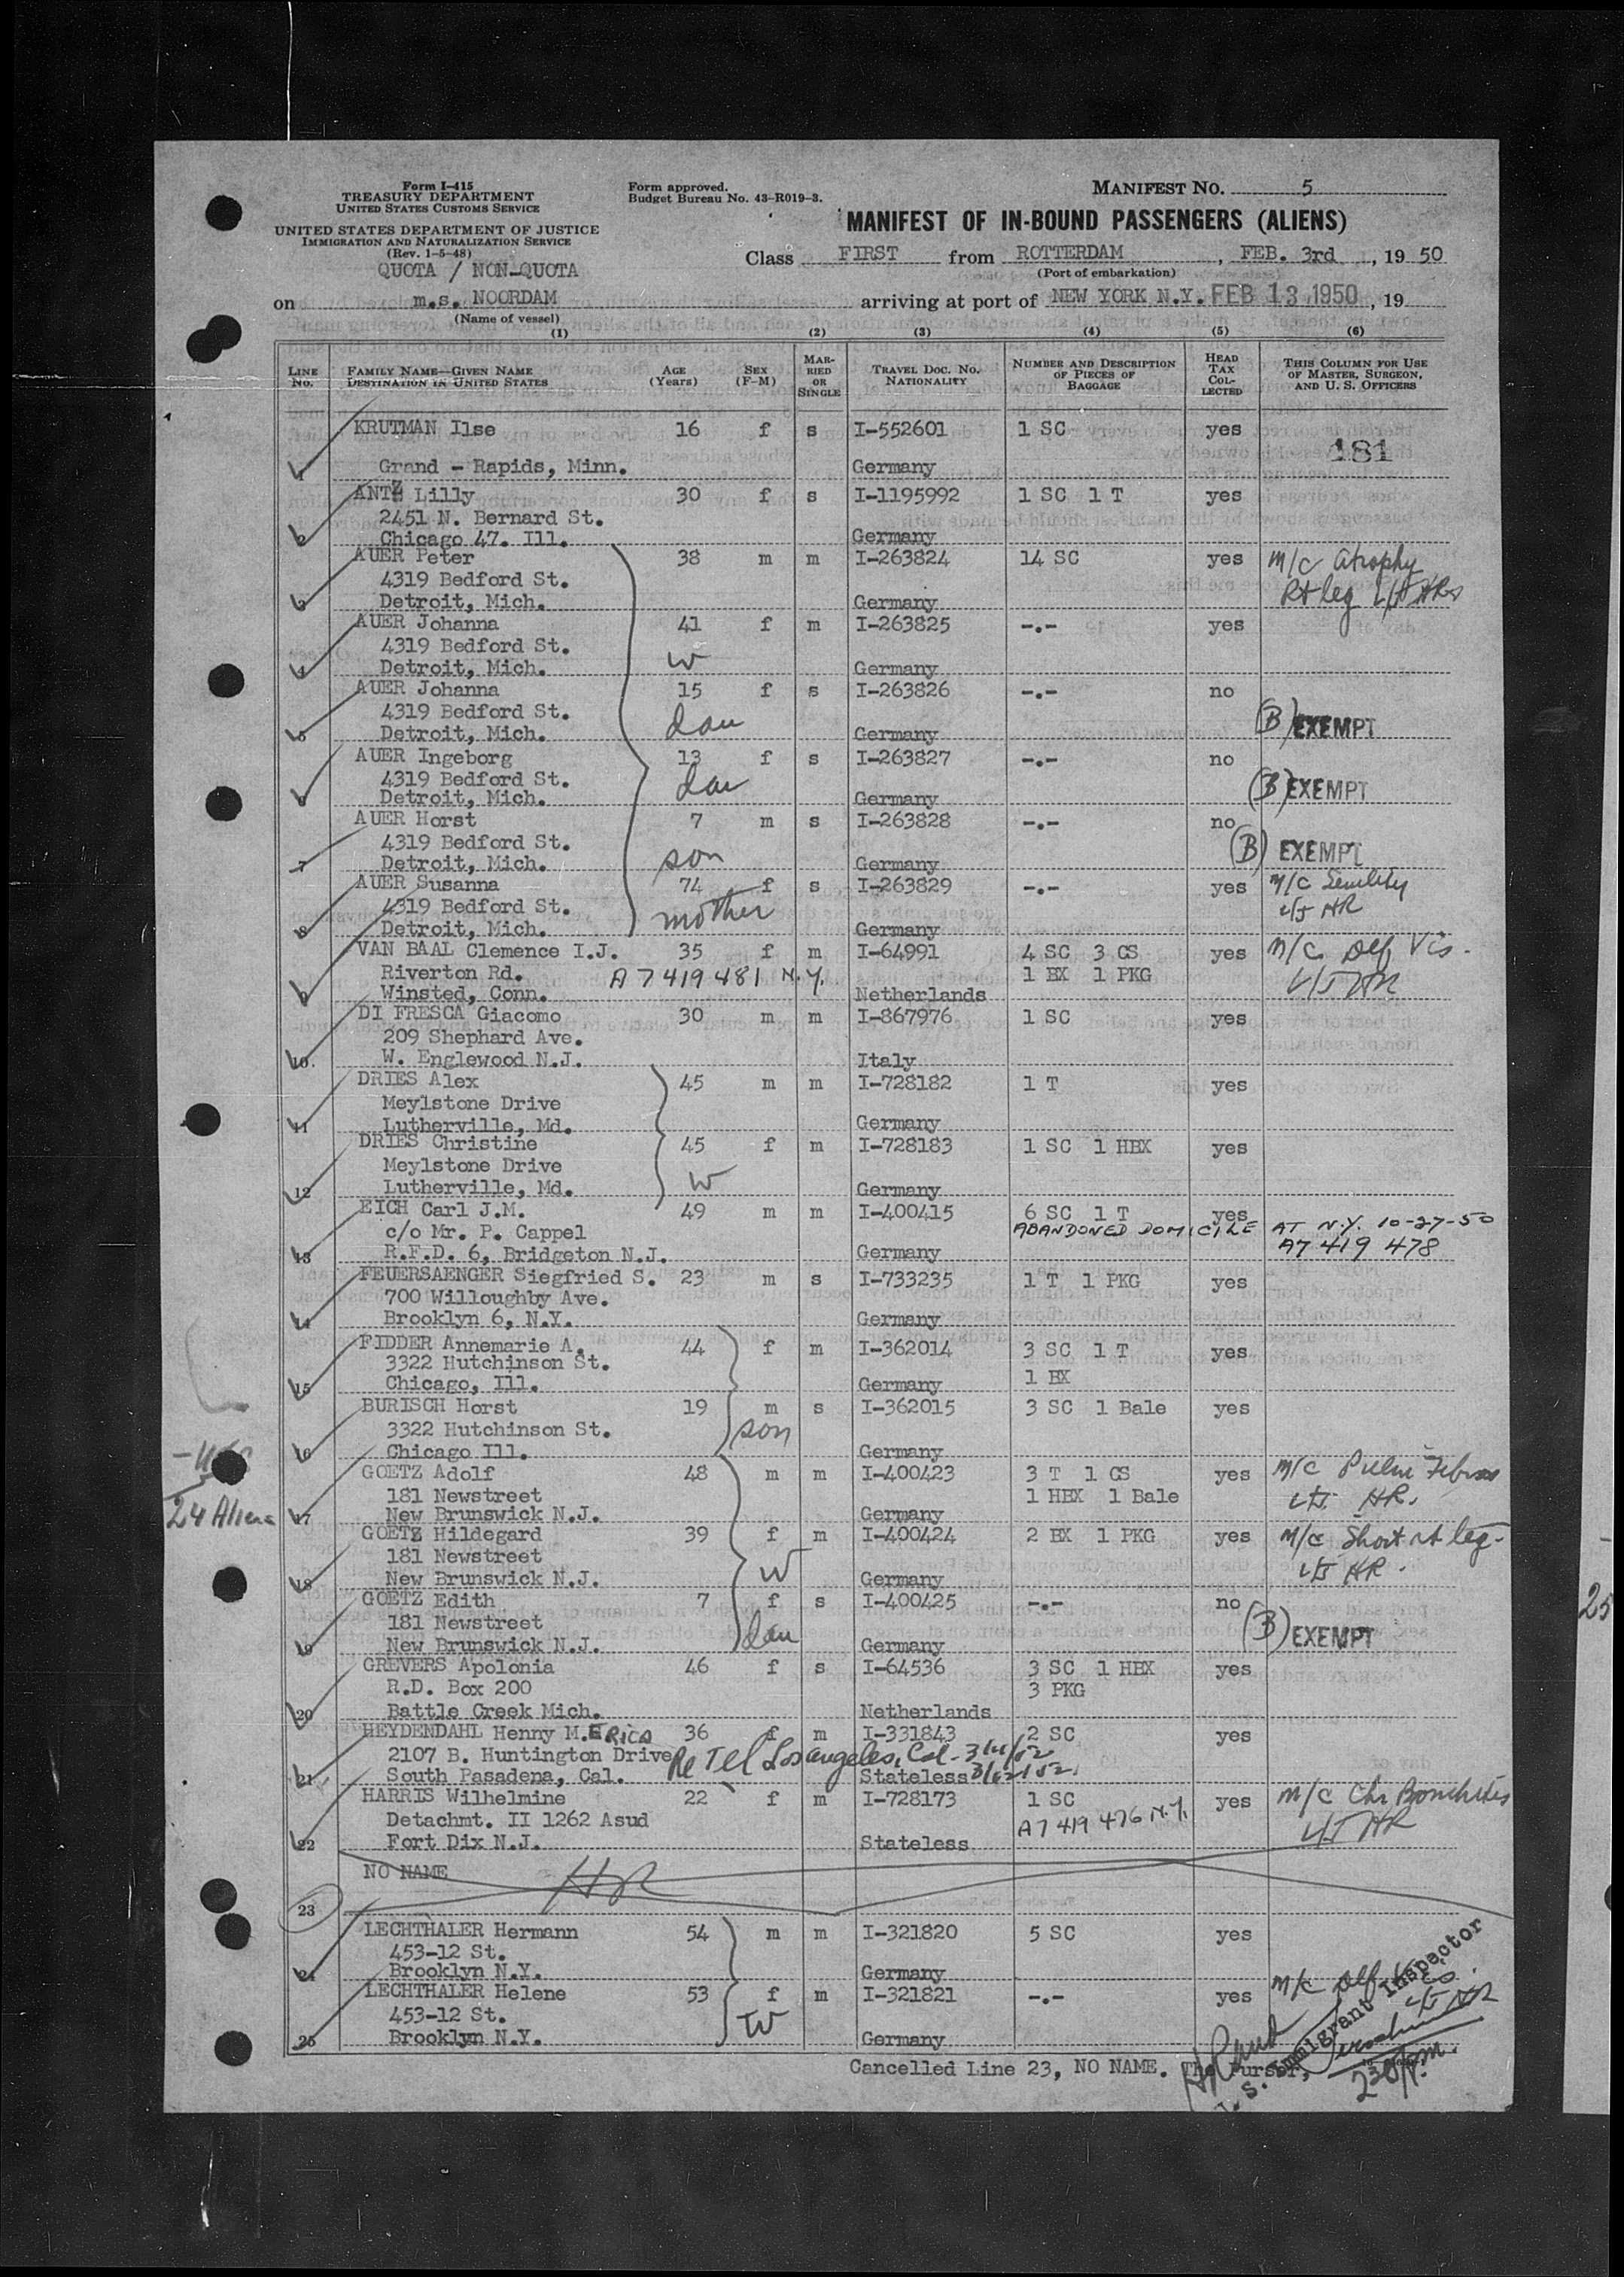 Form I-415
TREASURY DEPARTMENT
UNITED STATES CUSTOMS SERVICE
UNITED STATES DEPARTMENT OF JUSTICE
IMMIGRATION AND NATURALIZATION SERVICE
(Rev. 1-5-48)
QUOTA / NON-QUOTA
Form approved.
Budget Bureau No. 43-R019-3.
MANIFEST NO. 5
MANIFEST OF IN-BOUND PASSENGERS (ALIENS)
Class FIRST from ROTTERDAM, FEB. 3rd, 19 50
(Port of embarkation)
on m.s. NOORDAM arriving at port of NEW YORK N.Y. FEB 13 1950, 19
(Name of vessel)
(1) (2) (3) (4) (5) (6)
LINE NO. FAMILY NAME—GIVEN NAME DESTINATION IN UNITED STATES AGE (Years) SEX (F-M) MARRIED OR SINGLE TRAVEL DOC. NO. NATIONALITY NUMBER AND DESCRIPTION OF PIECES OF BAGGAGE HEAD TAX COLLECTED THIS COLUMN FOR USE OF MASTER, SURGEON, AND U. S. OFFICERS
KRUTMAN Ilse 16 f s I-552601 1 SC yes
181
1 Grand - Rapids, Minn. Germany
ANTZ Lilly 30 f s I-1195992 1 SC 1 T yes
2451 N. Bernard St.
2 Chicago 47. Ill. Germany
AUER Peter 38 m m I-263824 14 SC yes M/C Atrophy
4319 Bedford St. Rt leg
3 Detroit, Mich. Germany
AUER Johanna 41 f m I-263825 -.- yes
4319 Bedford St. W
4 Detroit, Mich. Germany
AUER Johanna 15 f s I-263826 -.- no
4319 Bedford St. dau (B) EXEMPT
5 Detroit, Mich. Germany
AUER Ingeborg 13 f s I-263827 -.- no
4319 Bedford St. dau (B) EXEMPT
6 Detroit, Mich. Germany
AUER Horst 7 m s I-263828 -.- no
4319 Bedford St. son (B) EXEMPT
7 Detroit, Mich. Germany
AUER Susanna 74 f s I-263829 -.- yes M/C Senility
4319 Bedford St. mother HR
8 Detroit, Mich. Germany
VAN BAAL Clemence I.J. 35 f m I-64991 4 SC 3 CS yes M/C Def Vis.
Riverton Rd. A7 419 481 N.Y. 1 BX 1 PKG HR
9 Winsted, Conn. Netherlands
DI FRESCA Giacomo 30 m m I-867976 1 SC yes
209 Shephard Ave.
10 W. Englewood N.J. Italy
DRIES Alex 45 m m I-728182 1 T yes
Meylstone Drive
11 Lutherville, Md. Germany
DRIES Christine 45 f m I-728183 1 SC 1 HBX yes
Meylstone Drive W
12 Lutherville, Md. Germany
EICH Carl J.M. 49 m m I-400415 6 SC 1 T yes
c/o Mr. P. Cappel ABANDONED DOMICILE AT N.Y. 10-27-50
13 R.F.D. 6, Bridgeton N.J. Germany A7 419 478
FEUERSAENGER Siegfried S. 23 m s I-733235 1 T 1 PKG yes
700 Willoughby Ave.
14 Brooklyn 6, N.Y. Germany
FIDDER Annemarie A. 44 f m I-362014 3 SC 1 T yes
3322 Hutchinson St. 1 BX
15 Chicago, Ill. Germany
BURISCH Horst 19 m s I-362015 3 SC 1 Bale yes
3322 Hutchinson St. son
16 Chicago Ill. Germany
GOETZ Adolf 48 m m I-400423 3 T 1 CS yes M/C Pulm Fibros
181 Newstreet 1 HBX 1 Bale HR.
24 Aliens
17 New Brunswick N.J. Germany
GOETZ Hildegard 39 f m I-400424 2 BX 1 PKG yes M/C Short rt leg-
181 Newstreet W HR.
18 New Brunswick N.J. Germany
GOETZ Edith 7 f s I-400425 -.- no
181 Newstreet dau (B) EXEMPT
19 New Brunswick N.J. Germany
25
GREVERS Apolonia 46 f s I-64536 3 SC 1 HBX yes
R.D. Box 200 3 PKG
20 Battle Creek Mich. Netherlands
HEYDENDAHL Henny M. ERICA 36 f m I-331843 2 SC yes
2107 B. Huntington Drive Re Tel Los angeles, Cal-
21 South Pasadena, Cal. Stateless
HARRIS Wilhelmine 22 f m I-728173 1 SC yes M/C Chr Bonchitis
Detachmt. II 1262 Asud A7 419 476 N.Y. HR
22 Fort Dix N.J. Stateless
NO NAME HR
23
LECHTHALER Hermann 54 m m I-321820 5 SC yes
453-12 St.
24 Brooklyn N.Y. Germany
LECHTHALER Helene 53 f m I-321821 -.- yes M/C Def Vis.
453-12 St. W HR
25 Brooklyn N.Y. Germany
Cancelled Line 23, NO NAME. The Purser,
U. S. Immigrant Inspector
230 P.m.